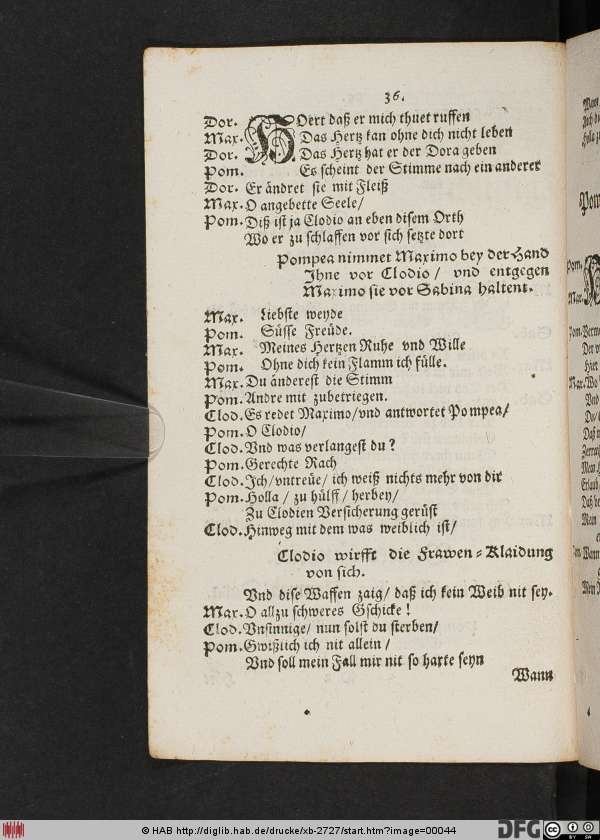 36.
Dor. HOert daß er mich thuet ruffen
Max. Das Hertz kan ohne dich nicht leben
Dor. Das Hertz hat er der Dora geben
Pom. Es scheint der Stimme nach ein anderer
Dor. Er ändret sie mit Fleiß
Max. O angebette Seele/
Pom. Diß ist ja Clodio an eben disem Orth
Wo er zu schlaffen vor sich setzte dort
Pompea nimmet Maximo bey der Hand
Ihne vor Clodio / vnd entgegen
Maximo sie vor Sabina haltent.
Max. Liebste weyde
Pom. Süsse Freüde.
Max. Meines Hertzen Ruhe vnd Wille
Pom. Ohne dich kein Flamm ich fülle.
Max. Du änderest die Stimm
Pom. Andre mit zubetriegen.
Clod. Es redet Maximo/vnd antwortet Pompea/
Pom. O Clodio/
Clod. Vnd was verlangest du?
Pom. Gerechte Rach
Clod. Ich/vntreüe/ ich weiß nichts mehr von dir
Pom. Holla / zu hülff / herbey/
Zu Clodien Versicherung gerüst
Clod. Hinweg mit dem was weiblich ist/
Clodio wirfft die Frawen-Klaidung
von sich.
Vnd dise Waffen zaig/ daß ich kein Weib nit sey.
Max. O allzu schweres Gschicke!
Clod. Vnsinnige/ nun solst du sterben/
Pom. Gwißlich ich nit allein/
Vnd soll mein Fall mir nit so harte seyn
Wann
© HAB http://diglib.hab.de/drucke/xb-2727/start.htm?image=00044
DFG
CC BY SA